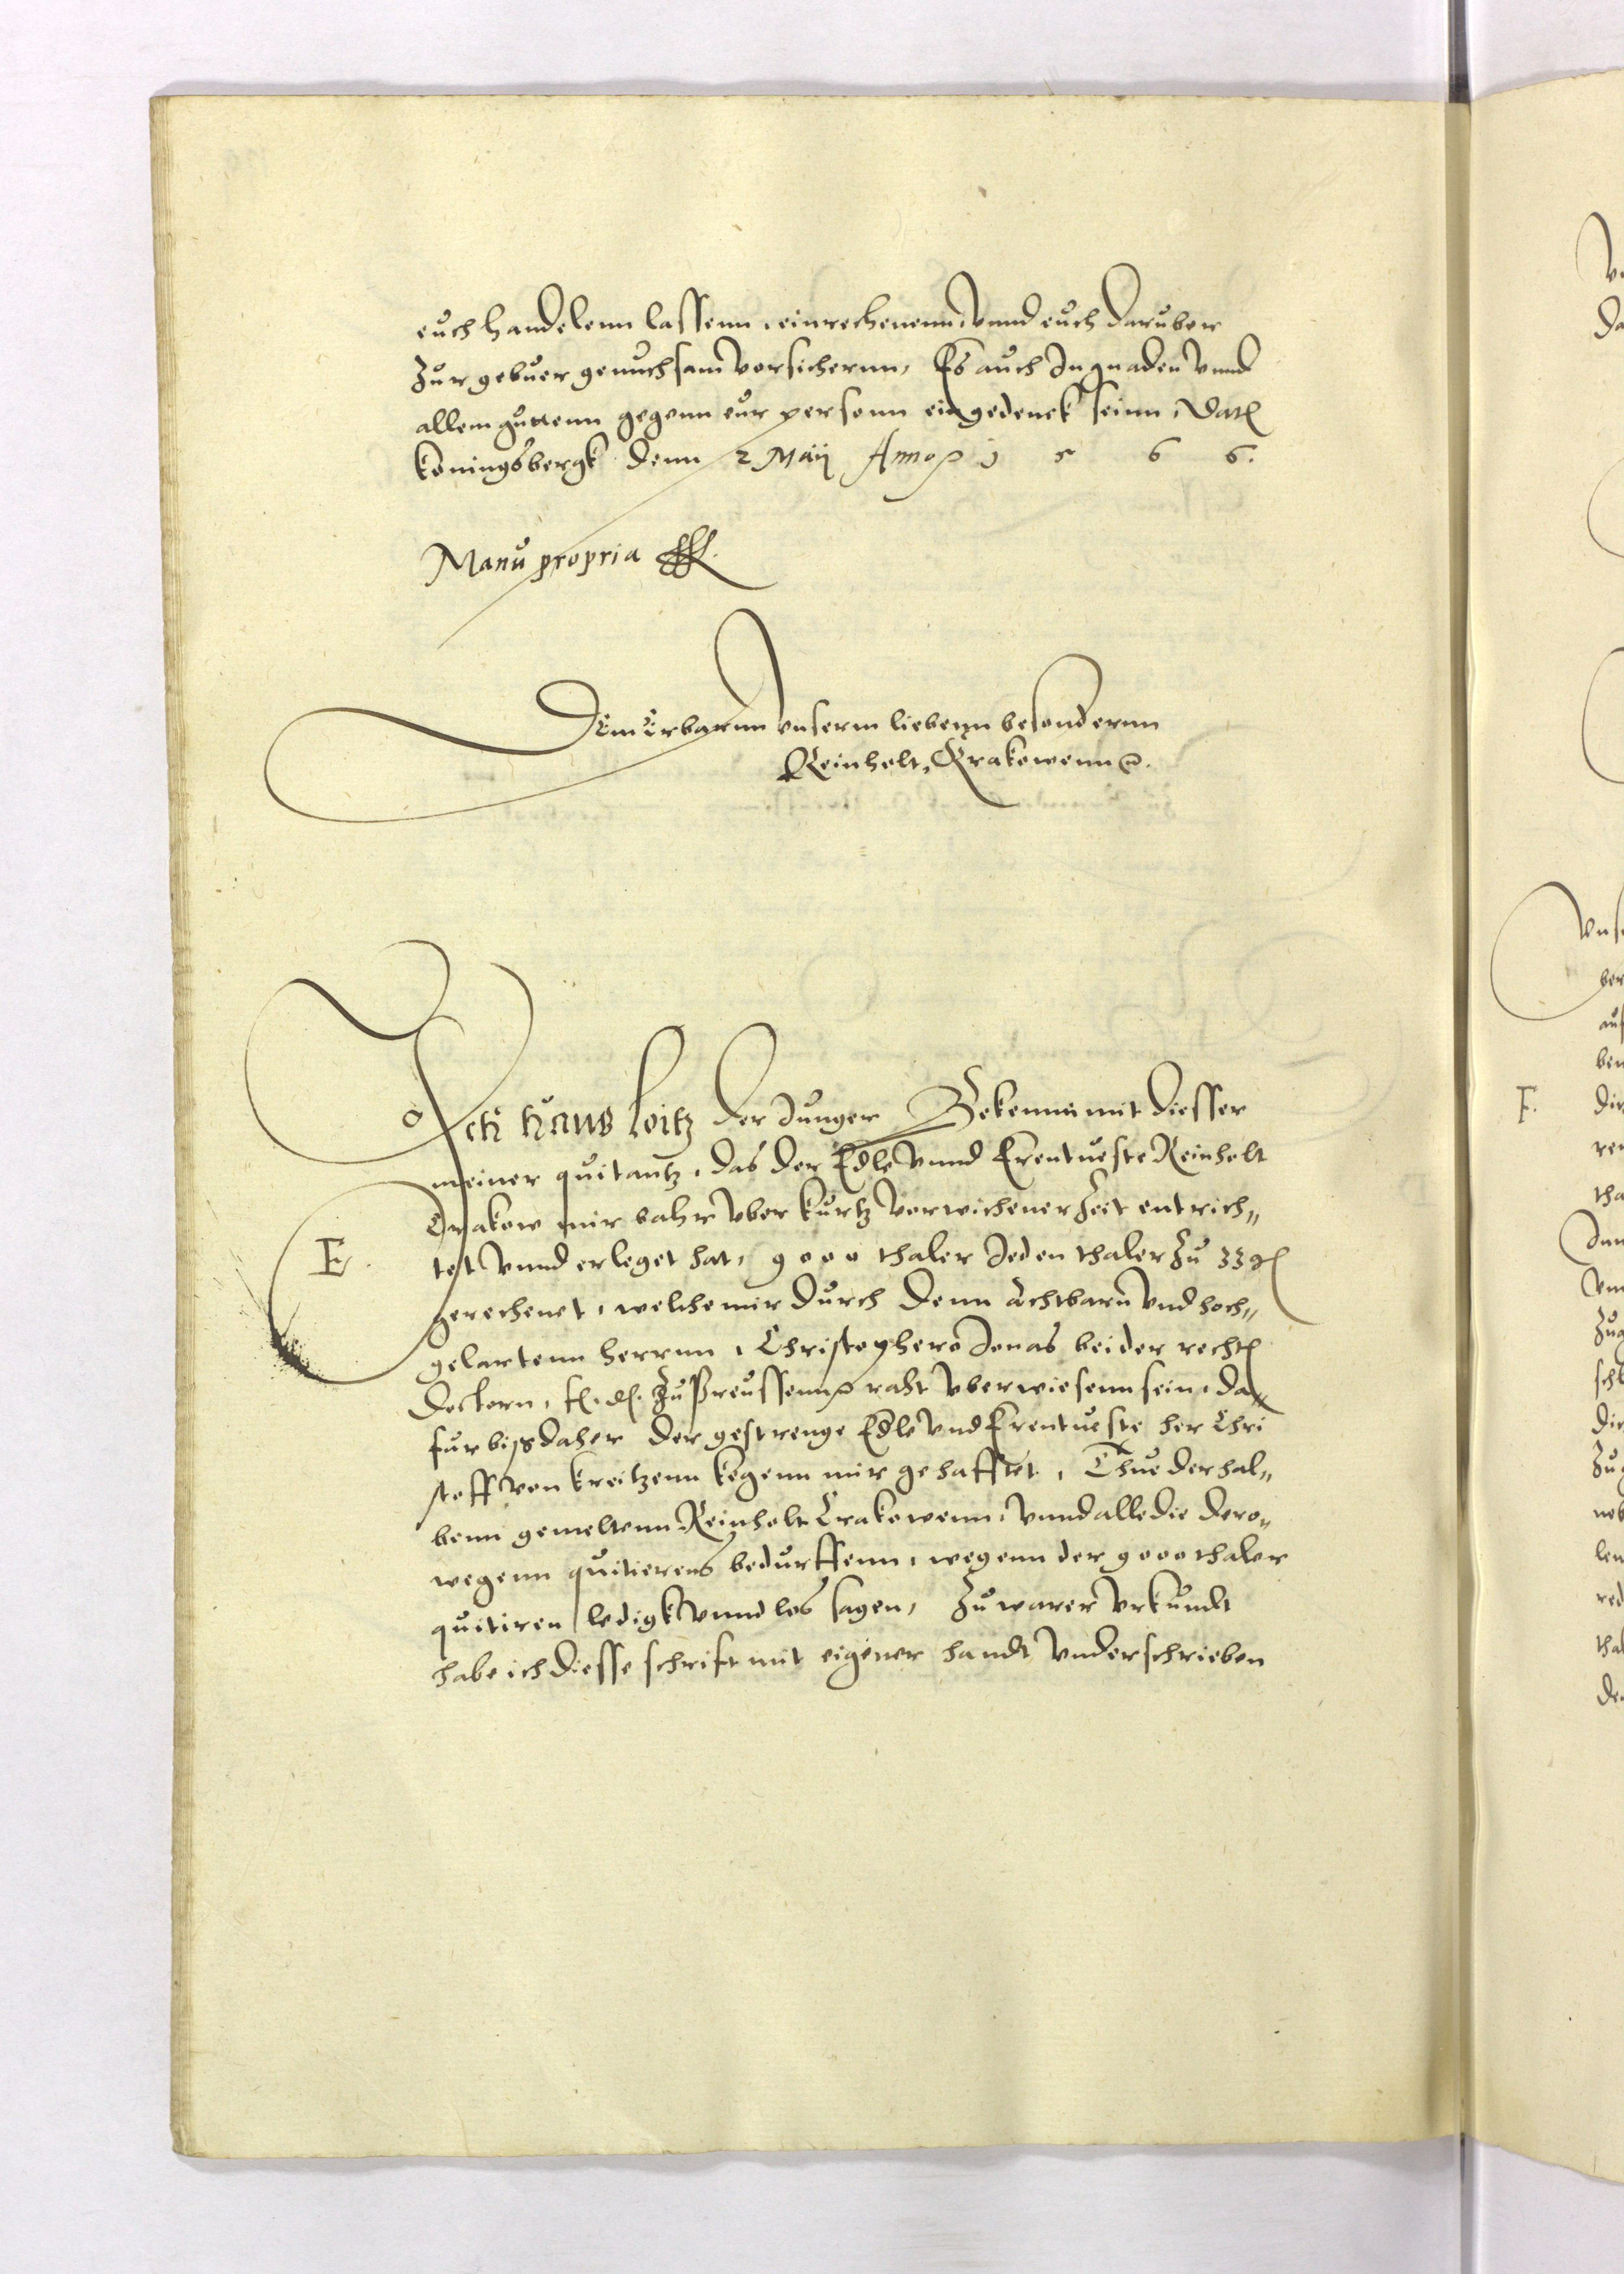 euch handelenn lassenn, einrechenenn, vnnd euch daruber
Zur gebuer genuchsam vorsichernn, Es auch In gnaden vnnd
allem guttenn gegenn eur personn eingedenck seinn, Dat
koningsbergk denn 2 Maij Anno 1 5 6 6.
Manu propria
Dem Erbarnn vnserm liebenn besondernn
Reinholt, Krakowenn
Ich Hans Loitz der Junger Bekenn mit diesser
meiner quitantz, das der Edle vnnd Erentueste Reinholt
Crakow mir bahr vber kurtz vorwichener Zeit entrich„
E. tet vnnd erleget hat, 9000 thaler Jeden thaler Zu 33 g
gerechenet, welche mir durch denn achtbarn vnd hoch„
gelartenn herrnn, Christophero Jonas beider recht
doctorn, f. d. Zu Preussenn raht vberwiesenn sein, da„
fur bissdaher der gestrenge Edle vnd Erentueste her Chri
stoff von kreitzenn kegenn mir gehafftet, Thue derhal„
benn gemeltenn Reinholt Crakowenn, vnnd alle die dero„
wegenn quitierens bedurffenn, wegenn der 9000 thaler
quitiren ledigk vnnd los sagen, Zu warer vrkundt
habe ich diesse schrift mit eigener handt vnderschrieben
F.